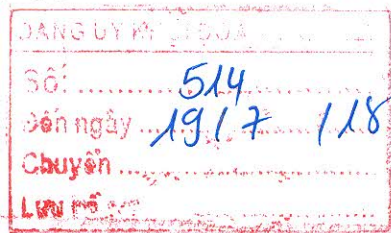 ĐẢNG ỦY KHỐI
Số: 514
Đến ngày 19/7/18
Chuyển
Lưu hồ sơ